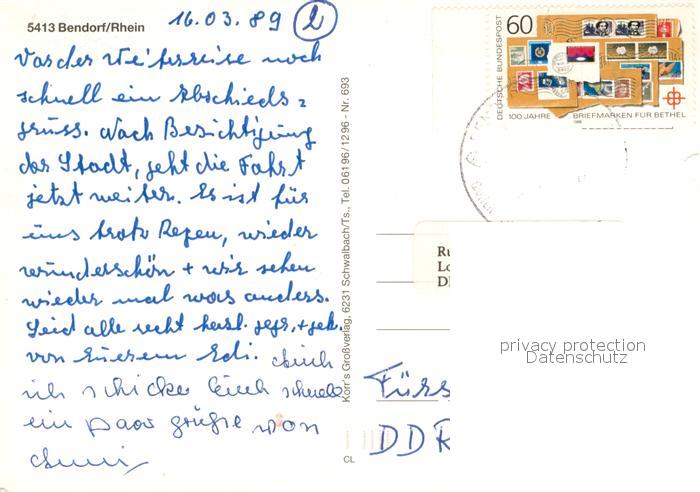 5413 Bendorf/Rhein
16.03.89 2
Vor der Weiterreise noch
schnell ein Abschieds=
gruss. Nach Besichtigung
der Stadt, geht die Fahrt
jetzt weiter. Es ist für
uns trotz Regen, wieder
wunderschön + wir sehen
wieder mal was anders.
Seid alle recht herzl. gegr. + gek.
von Eurem Edi. Auch
ich schicke Euch schnell
ein paar grüße von
Korr's Großverlag, 6231 Schwalbach/Ts., Tel. 06196/1296 - Nr. 693
CL
DEUTSCHE BUNDESPOST
60
100 JAHRE BRIEFMARKEN FÜR BETHEL
1988
Ru
Lo
D
privacy protection
Datenschutz
Fürs
DDR